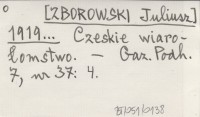 [ZBOROWSKI Juliusz]
1919... Czeskie wiaro-
łomstwo. — Gaz. Podh.
7, nr 37: 4.